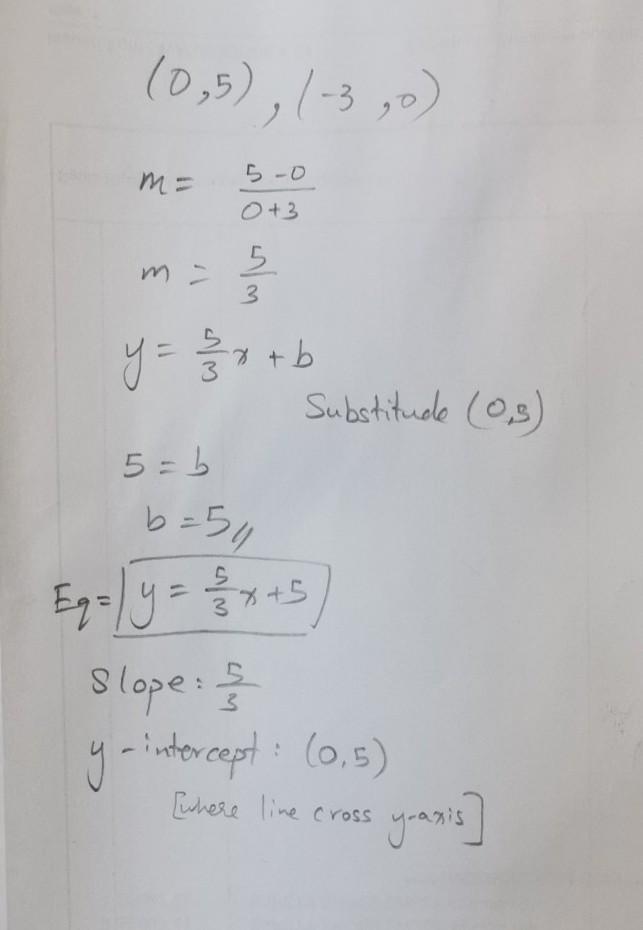 (0,5), (-3,0)
m = 5-0/0+3
m = 5/3
y = 5/3 x + b
Substitude (0,5)
5 = b
b = 5
Eq = y = 5/3 x + 5
Slope: 5/3
y-intercept: (0,5)
[where line cross y-axis]